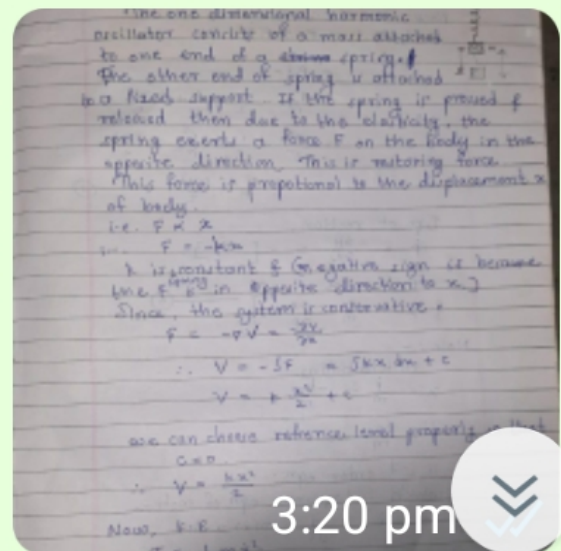 The one dimensional harmonic
oscillator consists of a mass attached
to one end of a spring.
The other end of spring is attached
to a fixed support. If the spring is pressed &
released then due to the elasticity, the
spring exerts a force F on the body in the
opposite direction. This is restoring force.
This force is propotional to the displacement x
of body.
i.e. F ∝ x
F = -kx
k is spring constant & (negative sign is because
the F is in opposite direction to x.)
Since, the system is conservative.
F = -∇V = -∂V/∂x
∴ V = -∫F = ∫kx dx + c
V = k x²/2 + c
we can choose refrence level properly so that
c = 0
∴ V = kx²/2
Now, K.E
3:20 pm